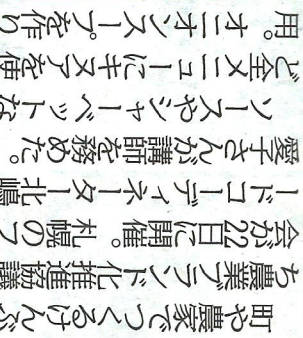 町や農家でつくるけんぶ
ち農業ブランド化推進協議
会が22日に開催。札幌のフ
ードコーディネーター北嶋
愛子さんが講師を務めた。
ソースやシャーベットな
ど全メニューにキヌアを使
用。オニオンスープを作り